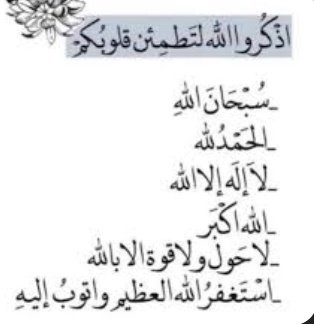 اذْكُروا الله لتَطمِئن قلوبُكمْ
_سُبْحَانَ اللهِ
_الحَمْدُلله
_لَا إِلَه إلا الله
_الله اكْبَر
_لا حَول ولا قوة الا بالله
_اسْتَغفرُ الله العظيم واتوبُ إليهِ